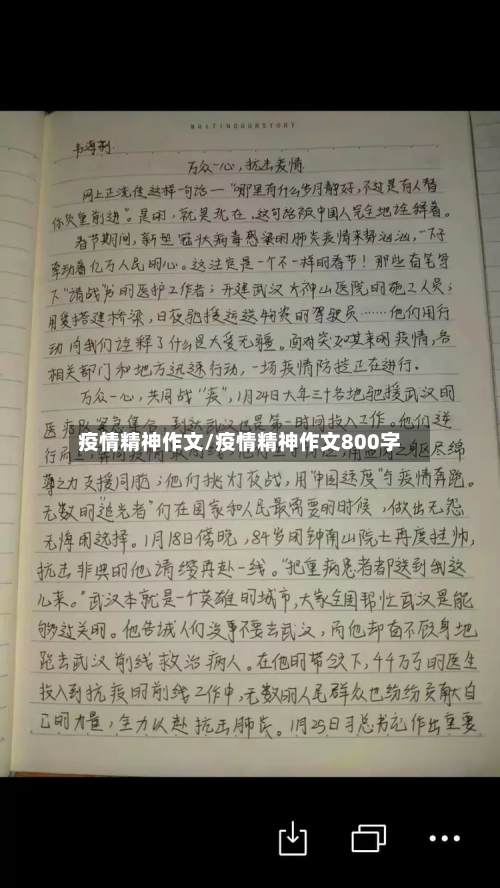 WRITINGOURSTORY
韦海荆
万众一心,抗击疫情
网上正流传这样一句话——“哪里有什么岁月静好,不过是有人替
你负重前进”。是的,就是现在,这句话被中国人完全地诠释着。
春节期间,新型冠状病毒感染的肺炎疫情来势汹汹,一下子
牵动着亿万人民的心。这注定是一个不一样的春节!那些自告
下“请战”书的医护工作者;开建武汉火神山医院的施工人员;
用爱搭建桥梁,日夜驰援运送物资的驾驶员……他们用行
动向我们诠释了什么是大爱无疆。面对突如其来的疫情,各
相关部门和地方迅速行动,一场疫情防控正在进行。
万众一心,共同战“疫”,1月24日大年三十各地驰援武汉的
医疗队紧急集合,到达武汉也是第一时间投入工作。他们逆
疫情精神作文/疫情精神作文800字
薄之力支援同胞;他们挑灯夜战,用“中国速度”与疫情奔跑。
无数的“追光者”们在国家和人民最需要的时候,做出无怨
无悔的选择。1月18日傍晚,84岁的钟南山院士再度挂帅,
抗击非典的他请缨再赴一线。“把重病患者都送到我这
儿来。”武汉本就是一个英雄的城市,大家全国帮忙武汉是能
够过关的。他告诫人们没事不要去武汉,而他却奋不顾身地
跑去武汉前线救治病人。在他的带领下,44万多的医生
投入到抗疫的前线工作中,无数的人民群众也纷纷贡献出自
己的力量,全力以赴抗击肺炎。1月25日习总书记作出重要